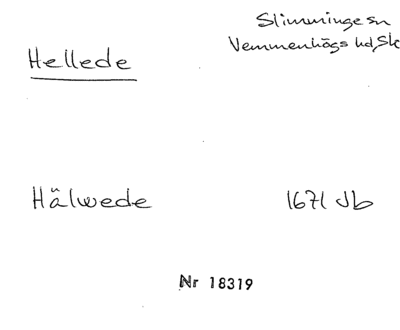 Hellede
Slimminge sn
Vemmenhögs hd, Sk
Hälwede
1671 Jb
Nr 18319